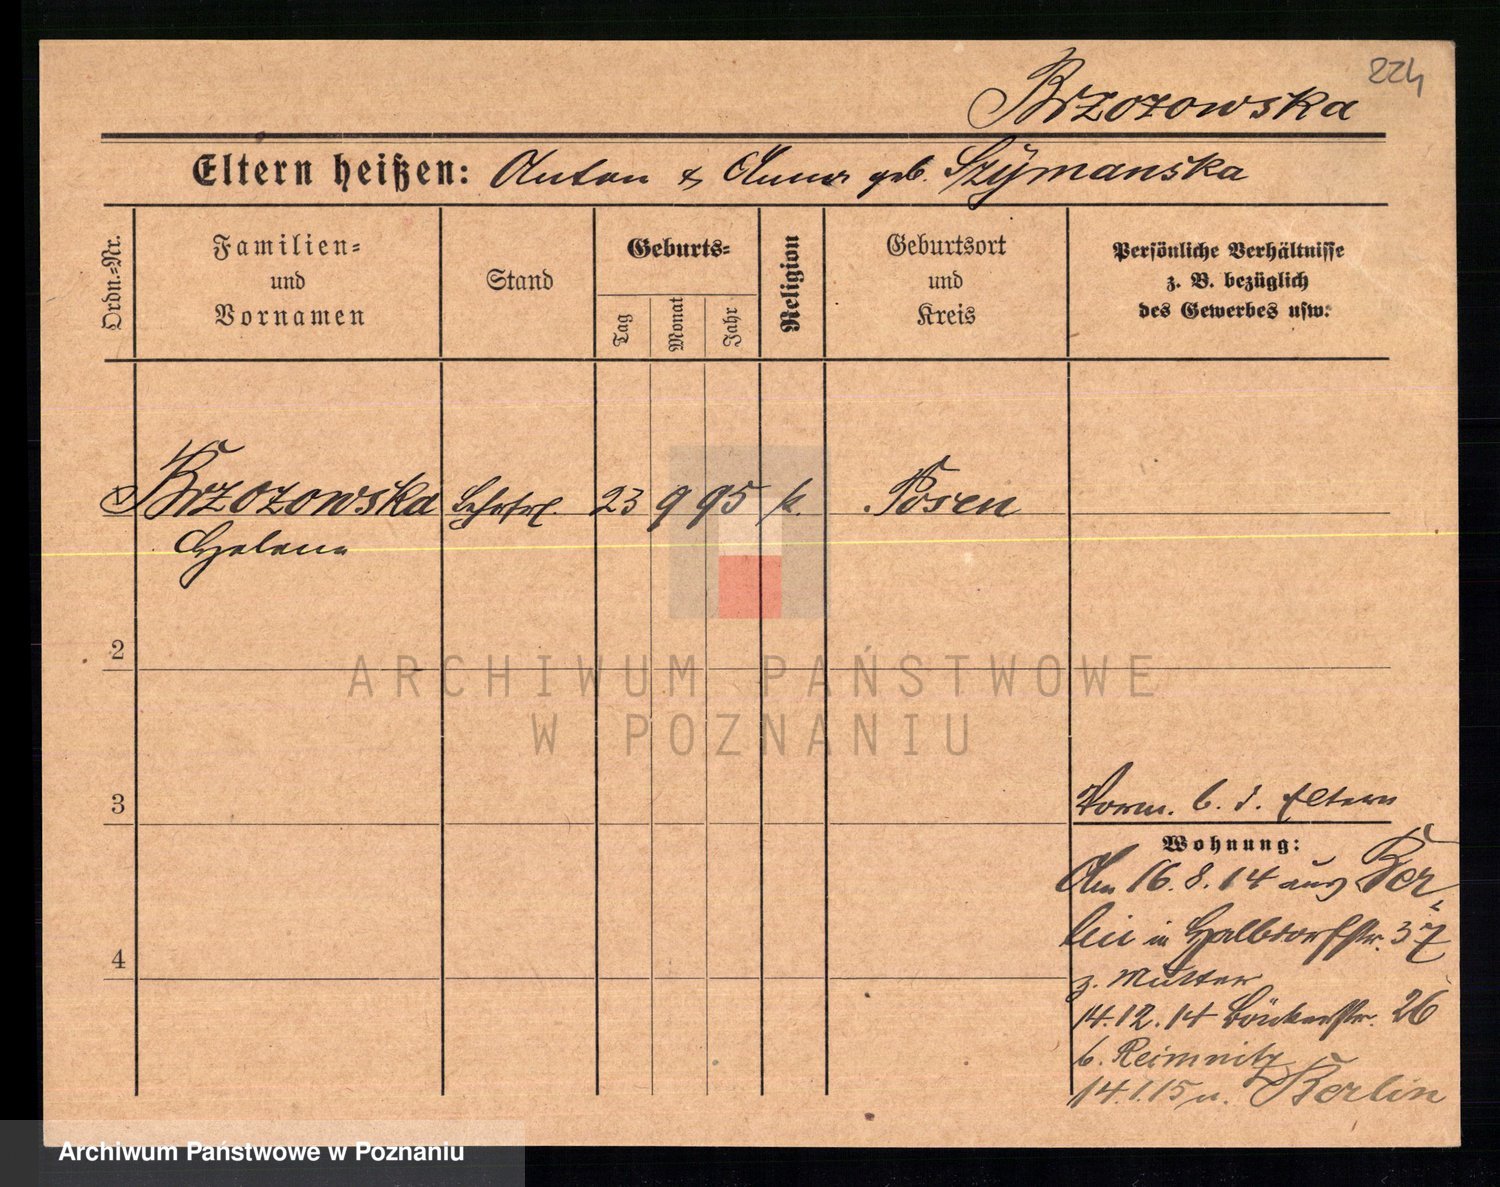 224
Brzozowska
Eltern heißen: Anton & Anna geb. Szymanska
Ordn.-Nr.
Familien-
und
Vornamen
Stand
Geburts-
Tag
Monat
Jahr
Religion
Geburtsort
und
Kreis
Persönliche Verhältnisse
z. B. bezüglich
des Gewerbes usw.
Brzozowska 23 9 95 k. Posen
Helene
2
ARCHIWUM PAŃSTWOWE
W POZNANIU
3
Vorm. b. d. Eltern
Wohnung:
Am 16.8.14 aus Ber-
lin in Halbdorfstr. 37
z. Mutter
4
14.12.14 Bäckerstr. 26
b. Reimnitz
14.1.15 n. Berlin
Archiwum Państwowe w Poznaniu